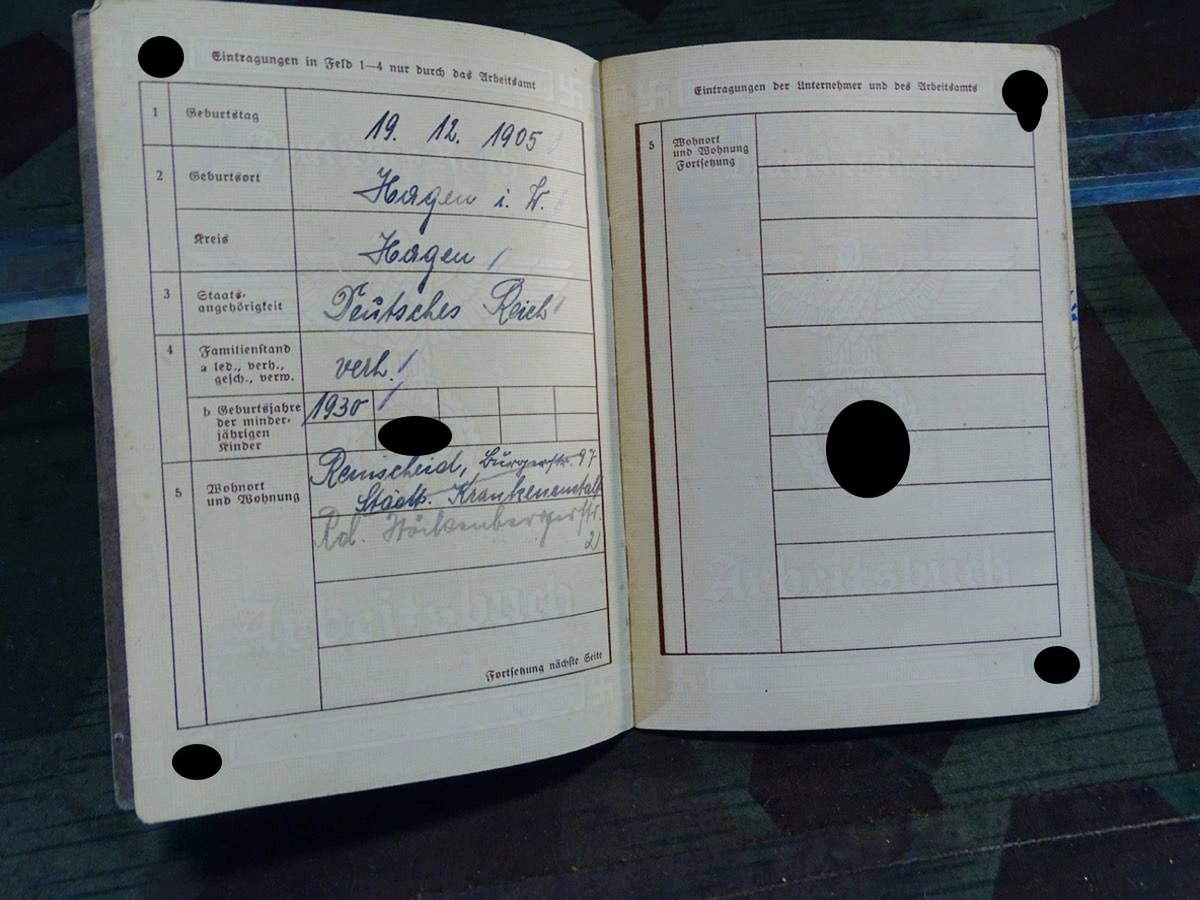 Eintragungen in Feld 1—4 nur durch das Arbeitsamt
1 Geburtstag 19. 12. 1905
2 Geburtsort Hagen i. W.
Kreis Hagen
3 Staats-
angehörigkeit Deutsches Reich
4 Familienstand
a led., verh., verh.
gesch., verw.
b Geburtsjahre 1930
der minder-
jährigen
Kinder
5 Wohnort
und Wohnung
Remscheid, Burgerstr. 97
Städt. Krankenanstalt
Rd.
2
Arbeitsbuch
Fortsetzung nächste Seite
Eintragungen der Unternehmer und des Arbeitsamts
5 Wohnort
und Wohnung
Fortsetzung
Arbeitsbuch